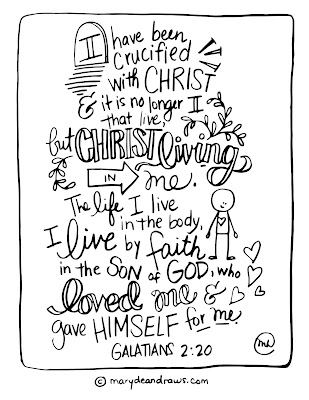 I have been
crucified
with CHRIST
& it is no longer I
that live,
but CHRIST living
IN me.
The life I live
in the body,
I live by faith
in the SON of GOD, who
loved me &
gave HIMSELF for me.
GALATIANS 2:20
md
© marydeandraws.com